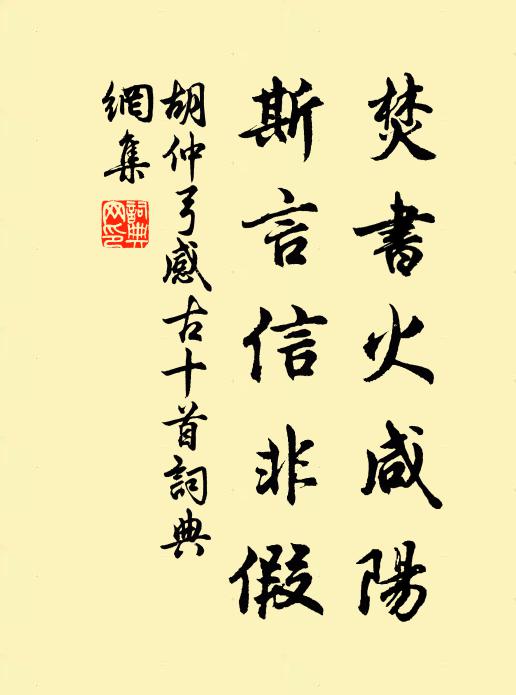 焚書火咸陽
斯言信非假
胡仲弓感古十首詞典
網集
詞典
网印